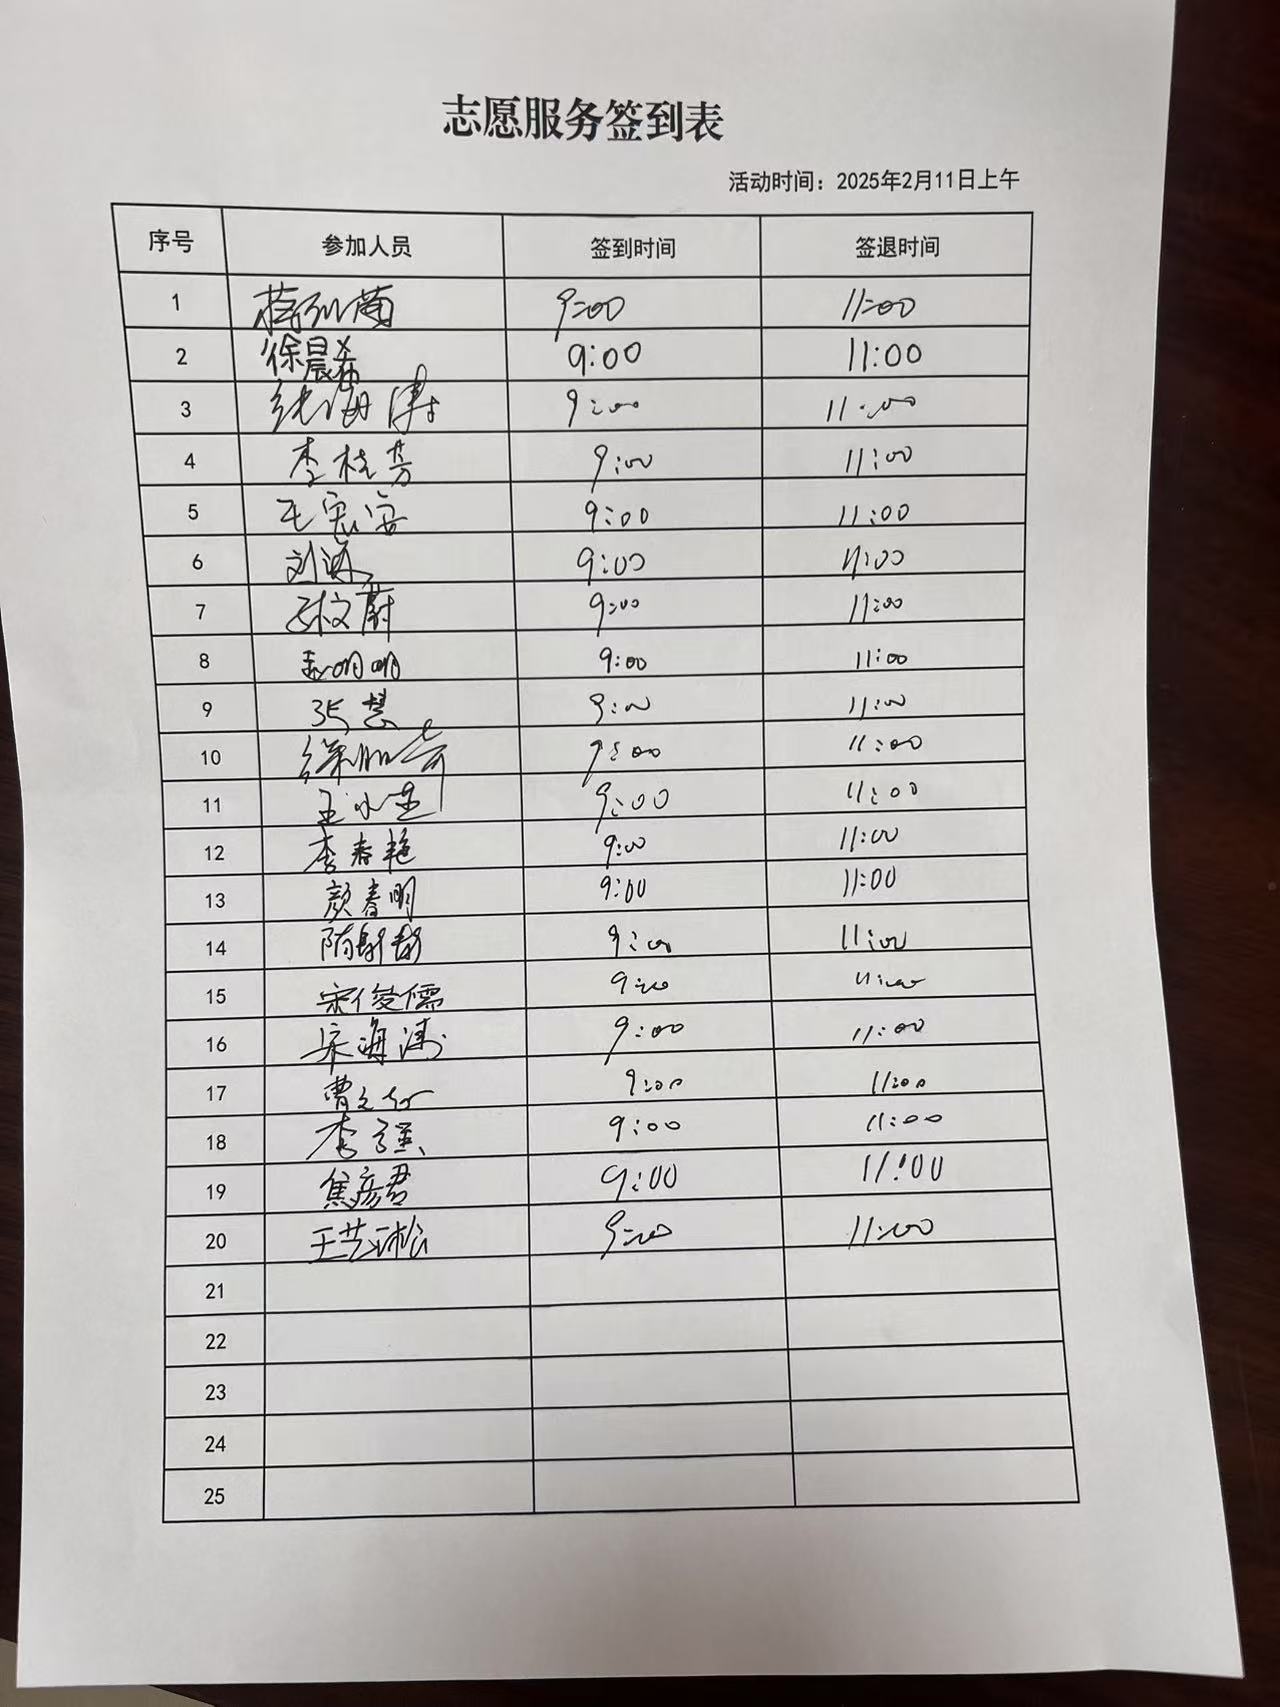 志愿服务签到表
活动时间：2025年2月11日上午
序号 参加人员 签到时间 签退时间
1 9:00 11:00
2 徐晨希 9:00 11:00
3 张海涛 9:00 11:00
4 李桂芳 9:00 11:00
5 王宏安 9:00 11:00
6 9:00 11:00
7 孙文蔚 9:00 11:00
8 孟明明 9:00 11:00
9 张慧 9:00 11:00
10 9:00 11:00
11 9:00 11:00
12 李春艳 9:00 11:00
13 颜春明 9:00 11:00
14 9:00 11:00
15 宋俊儒 9:00 11:00
16 宋海涛 9:00 11:00
17 9:00 11:00
18 李强 9:00 11:00
19 焦彦君 9:00 11:00
20 9:00 11:00
21
22
23
24
25